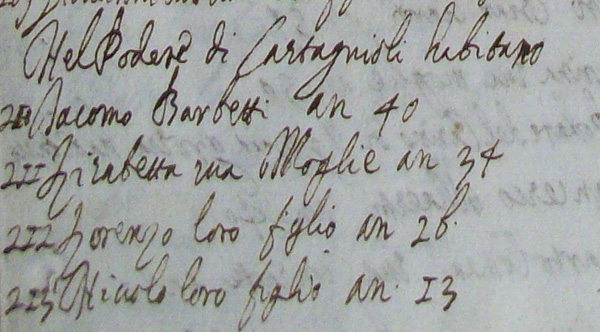 Nel Podere di Cartagnioli habitano
210 Jacomo Barbetti an 40
211 Lisabetta sua Moglie an 34
212 Lorenzo loro figlio an 26.
213 Nicolo loro figlio an. 13